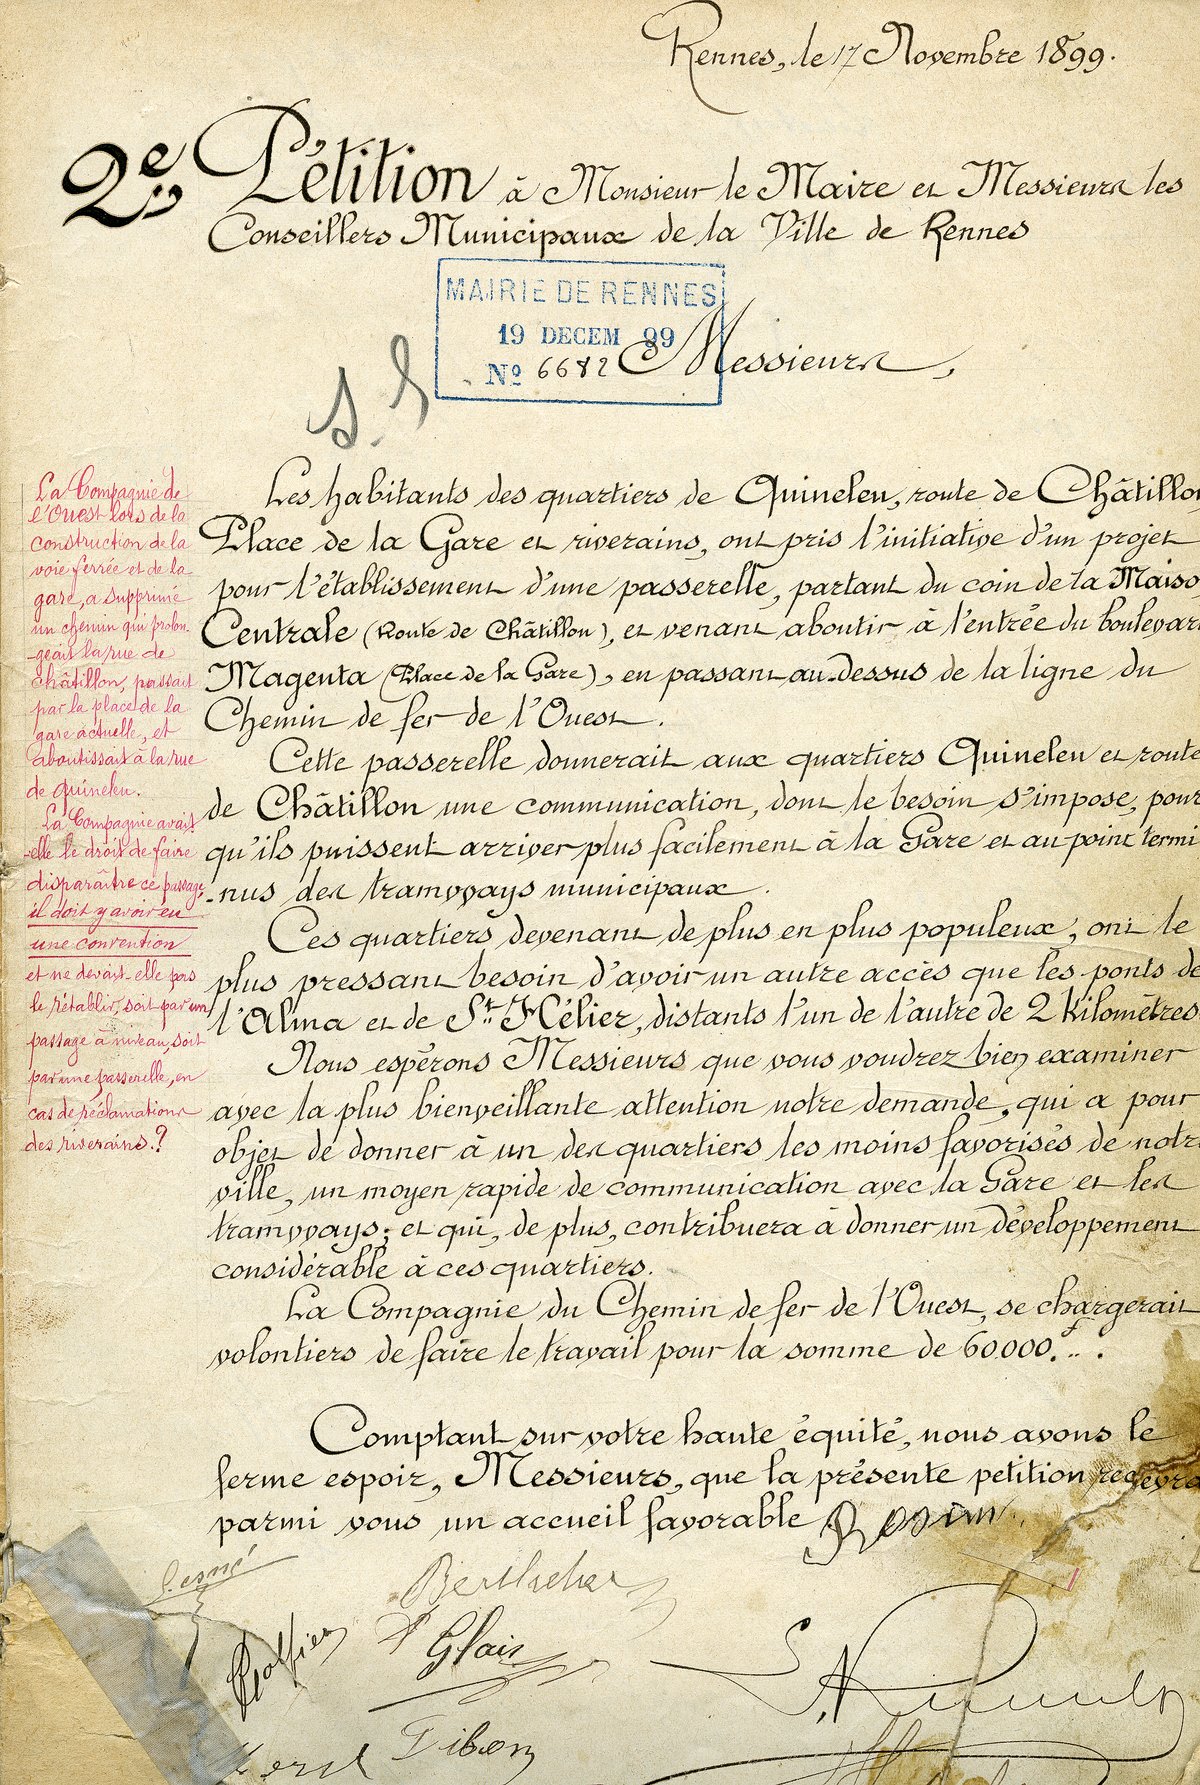 Rennes, le 17 Novembre 1899.
2e Pétition à Monsieur le Maire et Messieurs les
Conseillers Municipaux de la Ville de Rennes
MAIRIE DE RENNES
19 DECEM 99
No 6682
Messieurs,
Les habitants des quartiers de Quineleu, route de Châtillon
Place de la Gare et riverains, ont pris l'initiative d'un projet
pour l'établissement d'une passerelle, partant du coin de la Maiso
Centrale (Route de Châtillon), et venant aboutir à l'entrée du boulevar
Magenta (Place de la Gare), en passant au-dessus de la ligne du
Chemin de fer de l'Ouest.
Cette passerelle donnerait aux quartiers Quineleu et route
de Châtillon une communication, dont le besoin s'impose, pour
qu'ils puissent arriver plus facilement à la Gare et au point termi
-nus des tramways municipaux.
Ces quartiers devenant de plus en plus populeux, ont le
plus pressant besoin d'avoir un autre accès que les ponts de
l'Alma et de St Hélier, distants l'un de l'autre de 2 Kilomètres
Nous espérons Messieurs que vous voudrez bien examiner
avec la plus bienveillante attention notre demande, qui a pour
objet de donner à un des quartiers les moins favorisés de notr
ville, un moyen rapide de communication avec la Gare et les
tramways; et qui, de plus, contribuera à donner un développement
considérable à ces quartiers.
La Compagnie du Chemin de fer de l'Ouest, se chargerait
volontiers de faire le travail pour la somme de 60.000.f..
Comptant sur votre haute équité, nous avons le
ferme espoir, Messieurs, que la présente petition recevra
parmi vous un accueil favorable.
La Compagnie de
l'Ouest lors de la
construction de la
voie ferrée et de la
gare, a supprimé
un chemin qui prolon-
-geait la rue de
Châtillon, passait
par la place de la
gare actuelle, et
aboutissait à la rue
de quineleu.
La Compagnie avait
-elle le droit de faire
disparaître ce passage,
il doit y avoir eu
une convention
et ne devait-elle pas
le rétablir, soit par un
passage à niveau, soit
par une passerelle, en
cas de réclamations
des riverains.?
Glais
Tibon